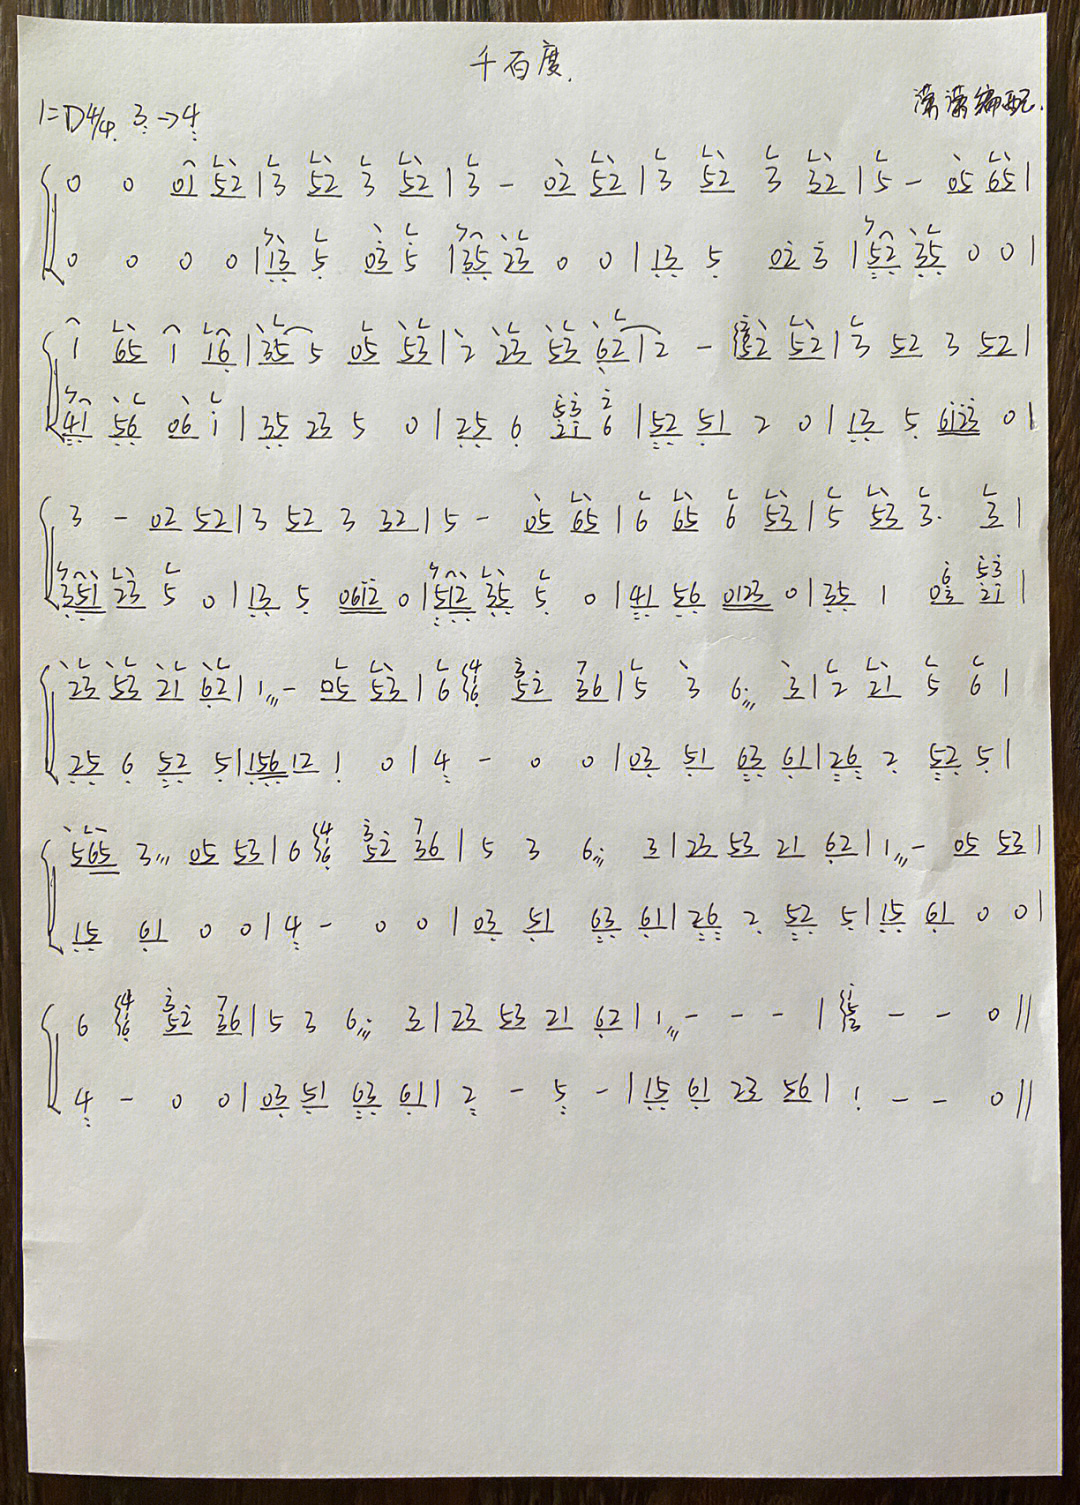 千百度.
1=D4/4. 3→4
潇潇编配.
0 0 01 52 | 3 52 3 52 | 3 - 02 52 | 3 52 3 32 | 5 - 05 65 |
0 0 0 0 | 13 5 03 5 | 35 23 0 0 | 13 5 02 3 | 52 35 0 0 |
1 65 1 16 | 35 5 05 53 | 2 23 53 62 | 2 - 52 52 | 3 52 3 52 |
41 56 06 1 | 35 23 5 0 | 25 6 53 21 2 6 | 52 51 2 0 | 13 5 6123 0 |
3 - 02 52 | 3 52 3 32 | 5 - 05 65 | 6 65 6 53 | 5 53 3. 3 |
351 23 5 0 | 13 5 0612 0 | 512 35 5 0 | 41 56 0123 0 | 35 1 6 03 53 21 |
23 53 21 62 | 1 - 05 53 | 6 46 3 52 7 36 | 5 3 6. 3 | 2 21 5 6 |
25 6 52 5 | 156 12 1 0 | 4 - 0 0 | 03 51 63 61 | 26 2 52 5 |
565 3 05 53 | 6 46 3 52 7 36 | 5 3 6. 3 | 23 53 21 62 | 1 - 05 53 |
15 61 0 0 | 4 - 0 0 | 03 51 63 61 | 26 2 52 5 | 15 61 0 0 |
6 46 3 52 7 36 | 5 3 6. 3 | 23 53 21 62 | 1 - - - | 1 5 3 - - 0 ||
4 - 0 0 | 03 51 63 61 | 2 - 5 - | 15 61 23 56 | 1 - - 0 ||